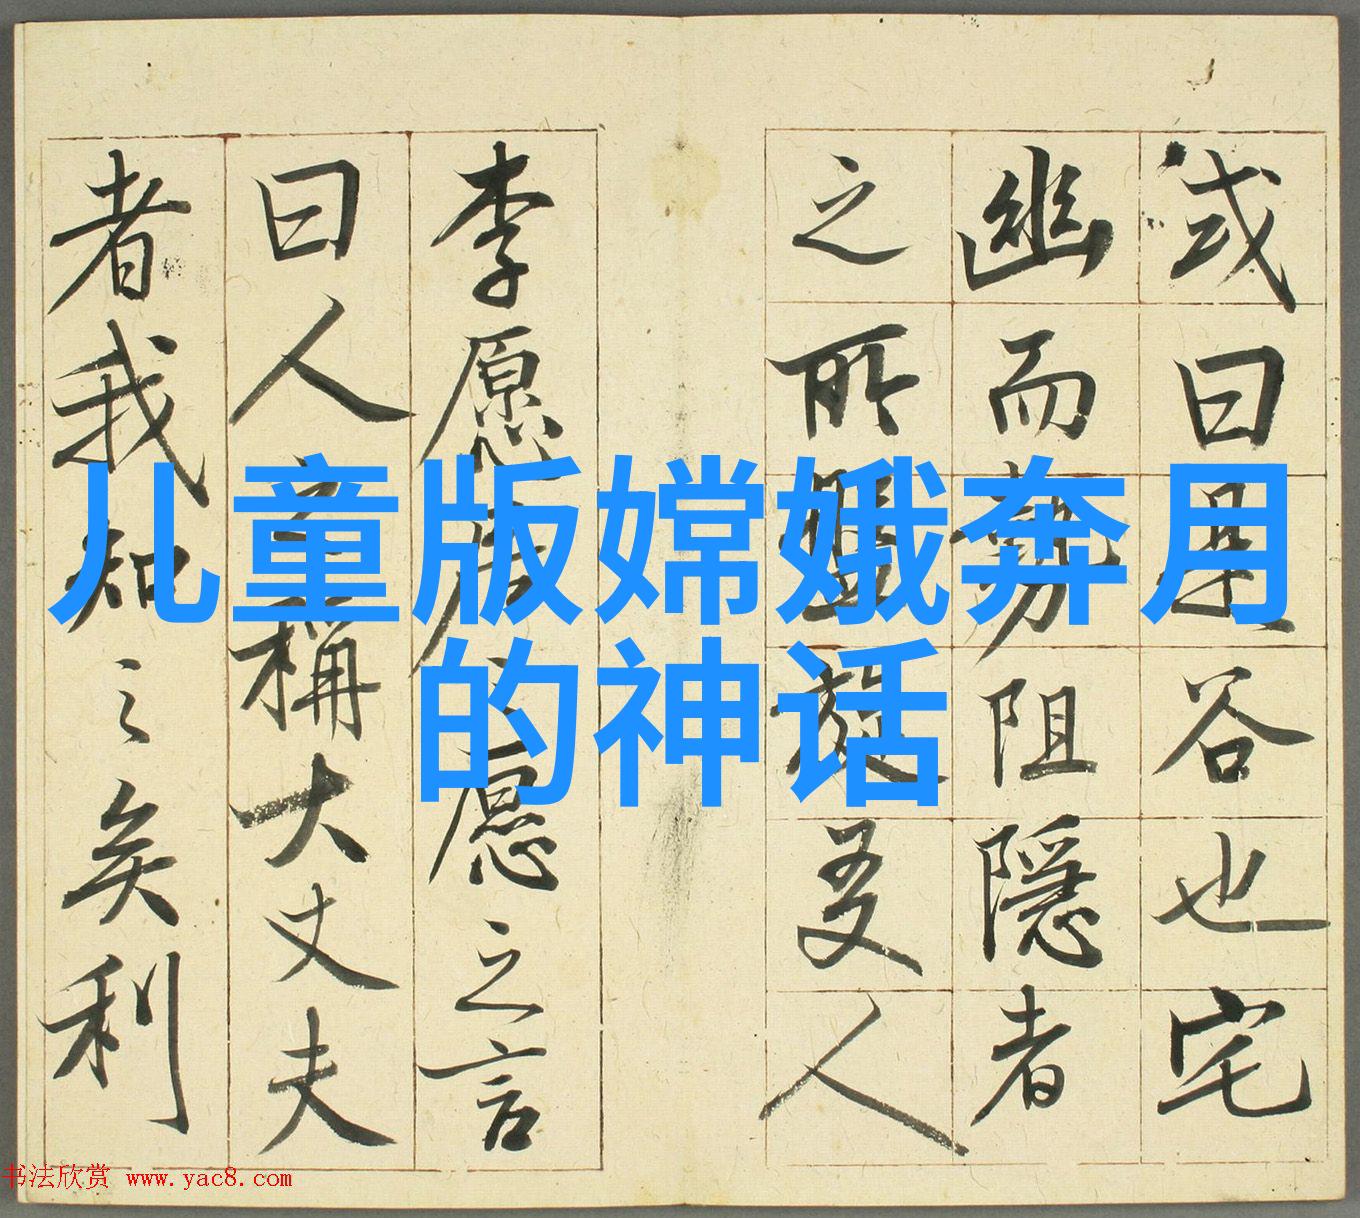 或曰是谷也宅
幽而勢阻隱者
之所盤旋友人
李愿居之愿之言
曰人之稱大丈夫
者我知之矣利
儿童版嫦娥奔月
的神话
书法欣赏 www.yac8.com